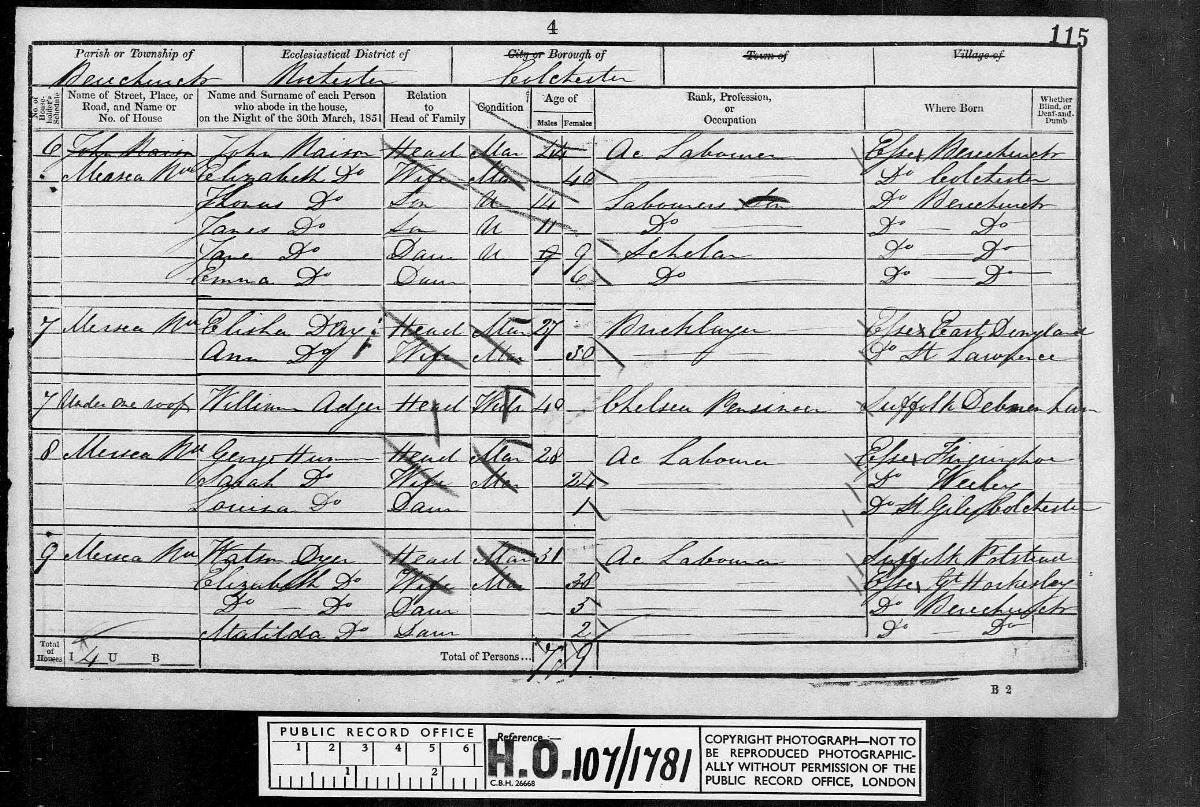 4
115
Parish or Township of Ecclesiastical District of City or Borough of Town of Village of
Berechurch Rochester Colchester
No. of House-holder's Schedule Name of Street, Place, or Road, and Name or No. of House Name and Surname of each Person who abode in the house, on the Night of the 30th March, 1851 Relation to Head of Family Condition Age of Males Females Rank, Profession, or Occupation Where Born Whether Blind, or Deaf-and-Dumb
6 John Head Mar 44 Ag Labourer Essex Berechurch
Mersea Rd Elizabeth Do Wife Mar 40 Do Colchester
Thomas Do Son U 14 Labourers Son Do Berechurch
James Do Son U 11 Do Do Do
Jane Do Daur U 9 Scholar Do Do
Emma Do Daur 6 Do Do Do
7 Mersea Rd Elisha Day Head Mar 27 Bricklayer Essex East Donyland
Ann Do Wife Mar 30 Do St Lawrence
7 Under one roof William Adger Head 40 Chelsea Pensioner Suffolk Debenham
8 Mersea Rd George Hum Head Mar 28 Ag Labourer Essex Fingringhoe
Sarah Do Wife Mar 24 Do Weeley
Louisa Do Daur 1 Do St Giles Colchester
9 Mersea Rd Watson Dyer Head Mar 31 Ag Labourer Suffolk Polstead
Elizabeth Do Wife Mar 38 Essex Gt Horkesley
Do Do Daur 5 Do Berechurch
Matilda Do Daur 2 Do Do
Total of Houses I 4 U B Total of Persons... 7 9
B 2
PUBLIC RECORD OFFICE
1 2 3 4 5 6
1 2
Reference :—
H.O. 107/1781
C.B.H. 26668
COPYRIGHT PHOTOGRAPH—NOT TO
BE REPRODUCED PHOTOGRAPHIC-
ALLY WITHOUT PERMISSION OF THE
PUBLIC RECORD OFFICE, LONDON